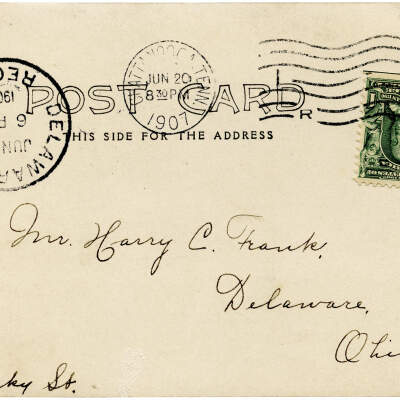 CHATTANOOGA, TENN.
JUN 20
8 30 PM
1907
DELAWAR
REC
190
6 P
JUN
POST CARD
R
THIS SIDE FOR THE ADDRESS
Mr. Harry C. Frank,
Delaware,
Ohi
ky St.